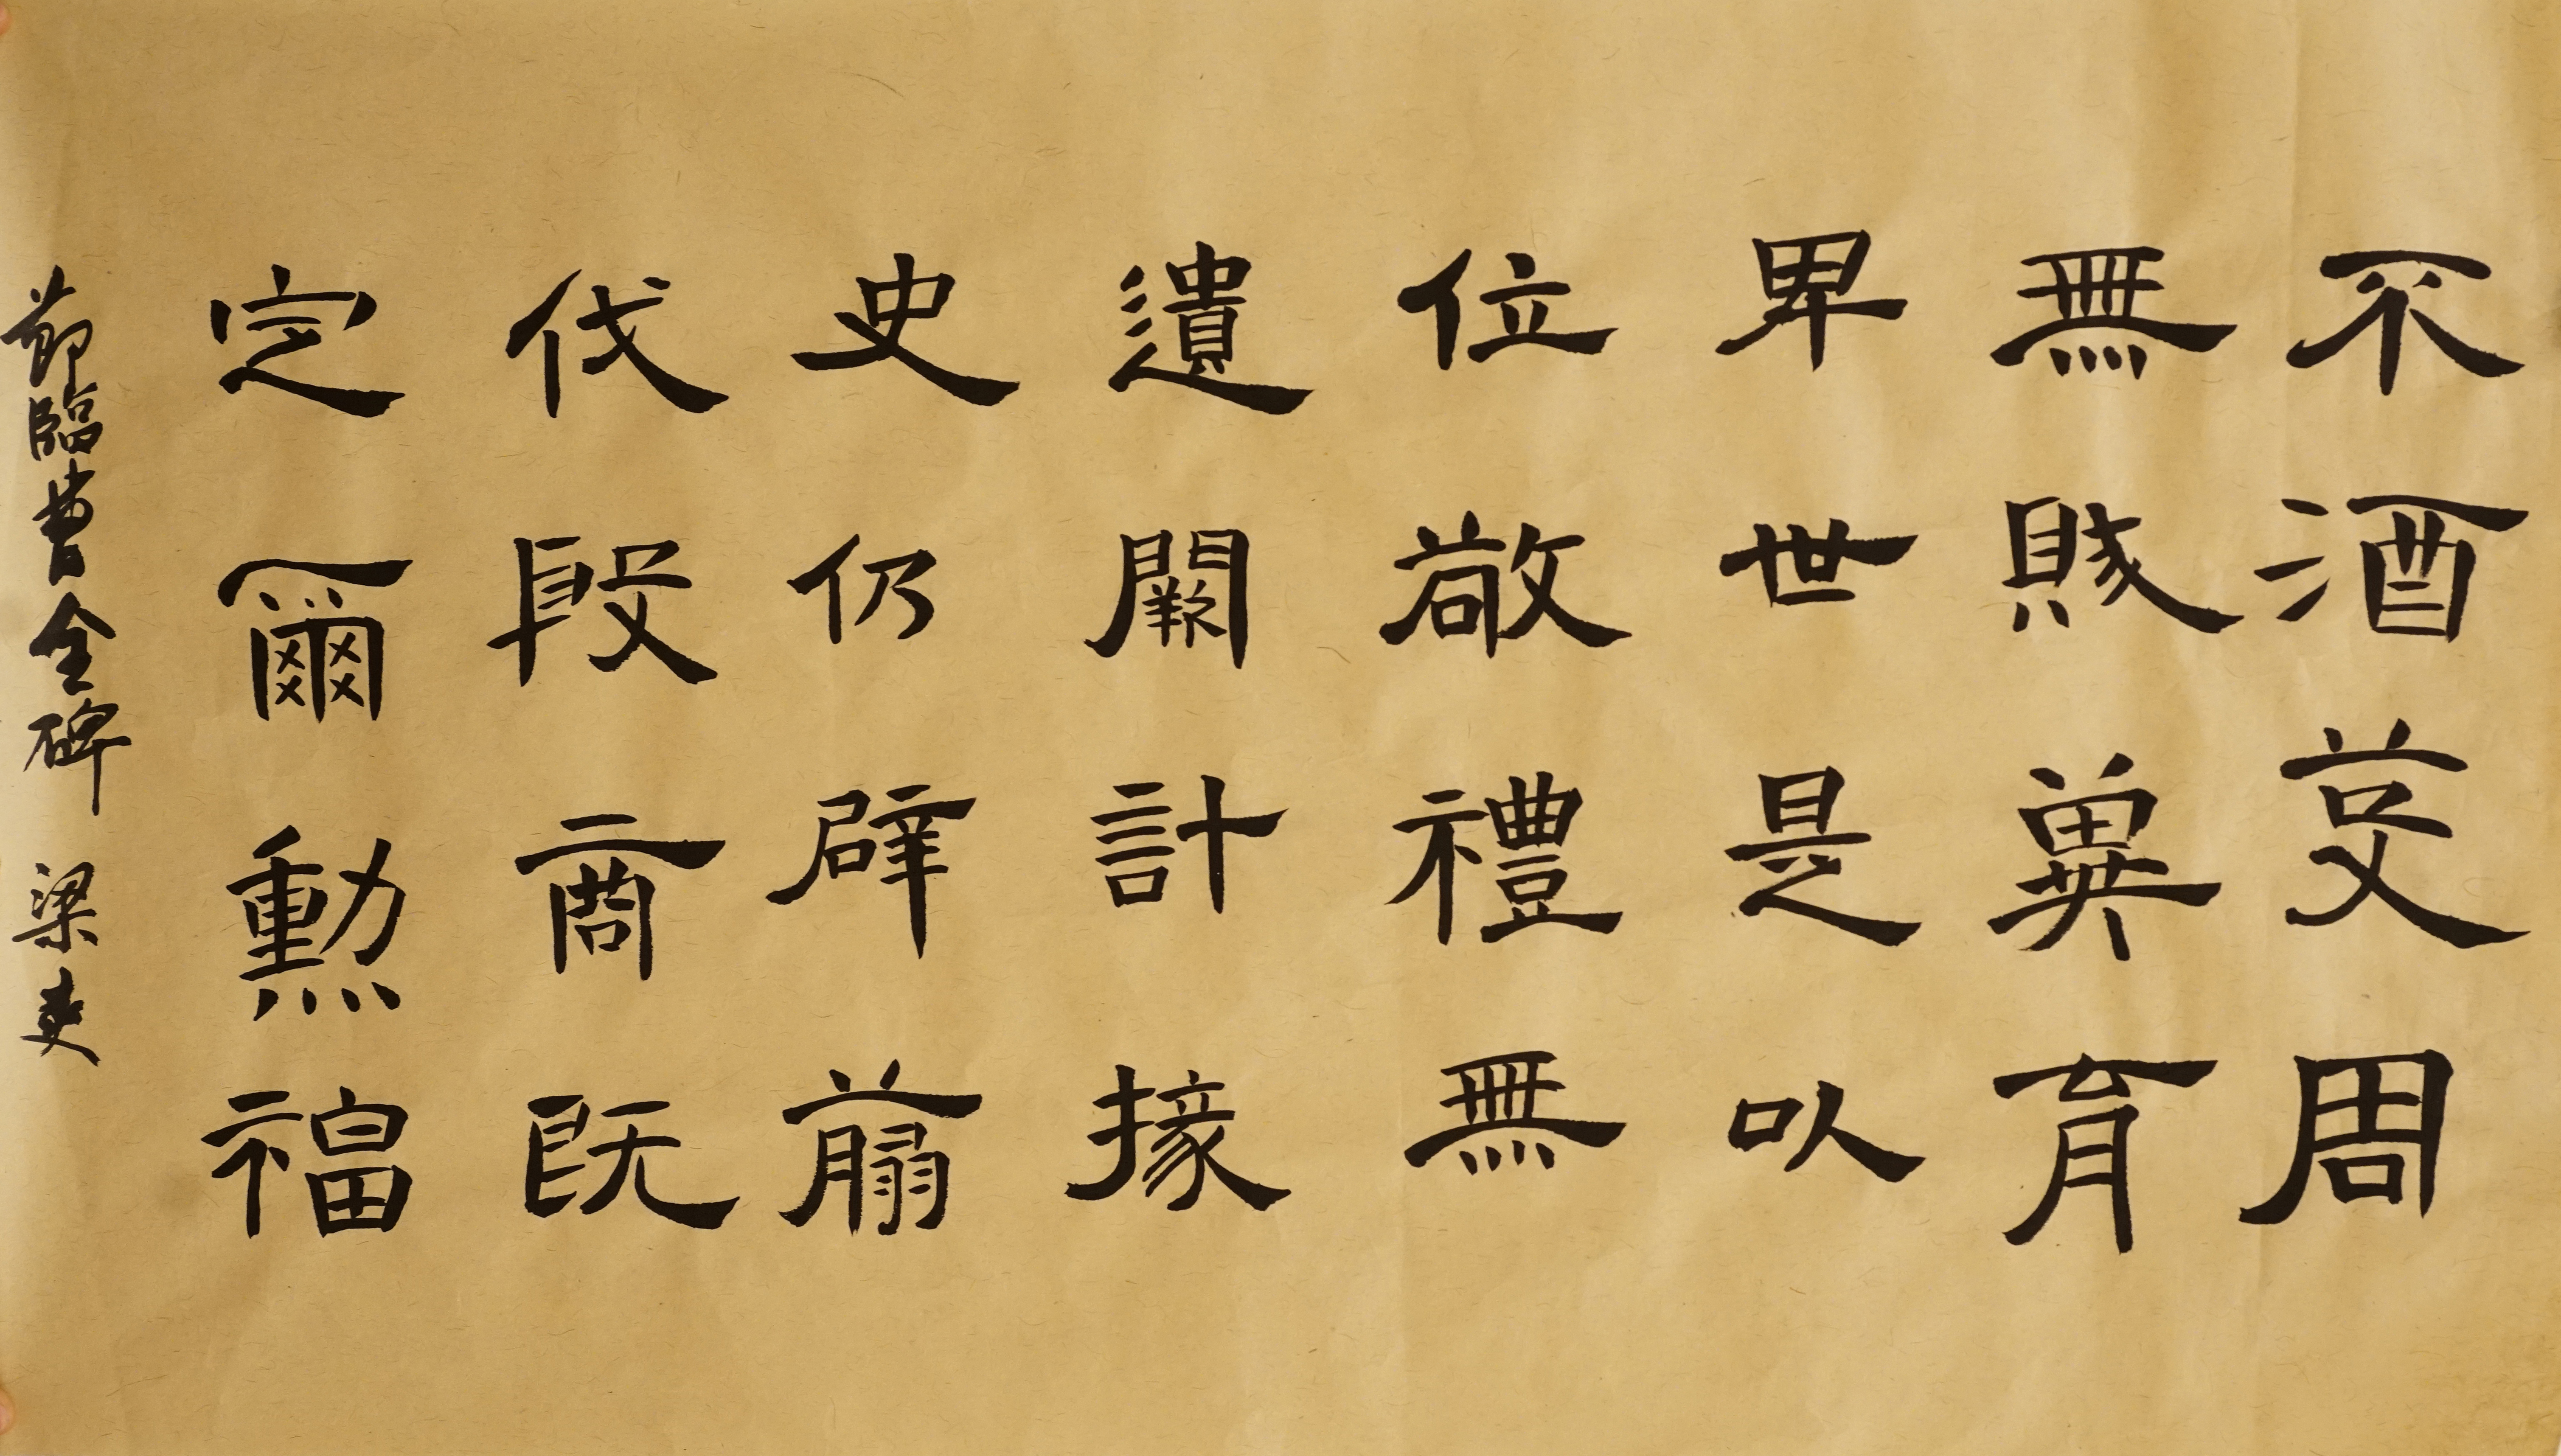 不酒芟周
無賤冀育
卑世是以
位敬禮無
遺闕計掾
史仍辟萷
伐殷商既
定爾勳福
節臨曹全碑 梁吏